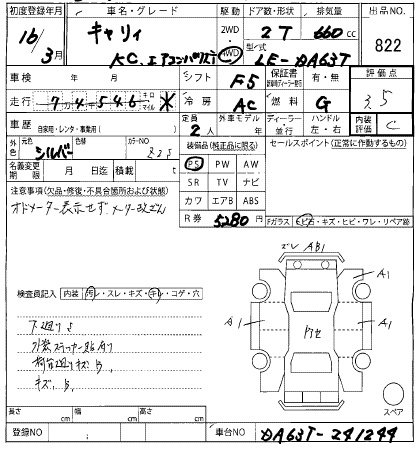 初度登録年月
車名・グレード
駆動
ドア数・形状
排気量
出品NO.
16/3月
キャリィ
KC.エアコンパワステ
2WD
4WD
2 T
660cc
822
型/式
LE-DA63T
車検 年 月
シフト
F5
保証書
有・無
評価点
3.5
走行 7 4 5 4 6 キロ マイル
冷房
AC
燃料
G
車歴 自家用・レンタ・事業用( )
定員
2人
外車モデル 年
ディーラー・並行
ハンドル 左・右
内装
C
外色
元色
シルバー
色替
カラーNO
装備品(純正品に限る)
セールスポイント(正常に作動するもの)
名義変更期限 月 日迄
積載 t
PS PW AW
SR TV ナビ
カワ エアB ABS
注意事項(欠品・修復・不具合箇所および状態)
オドメーター表示せず.
R券
5280円
Fガラス ヒビ・キズ・ヒビ・ワレ・リペア跡
AB1
A1
A1
A1
検査員記入
内装 汚レ・スレ・キズ・キレ・コゲ・穴
下廻りS
キズ.
スペア
長さ cm
幅 cm
高さ cm
登録NO
車台NO
DA63T-241244